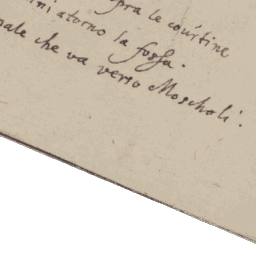 pra le courtine
ni atorno la fossa.
nale che va verso Moscholi.